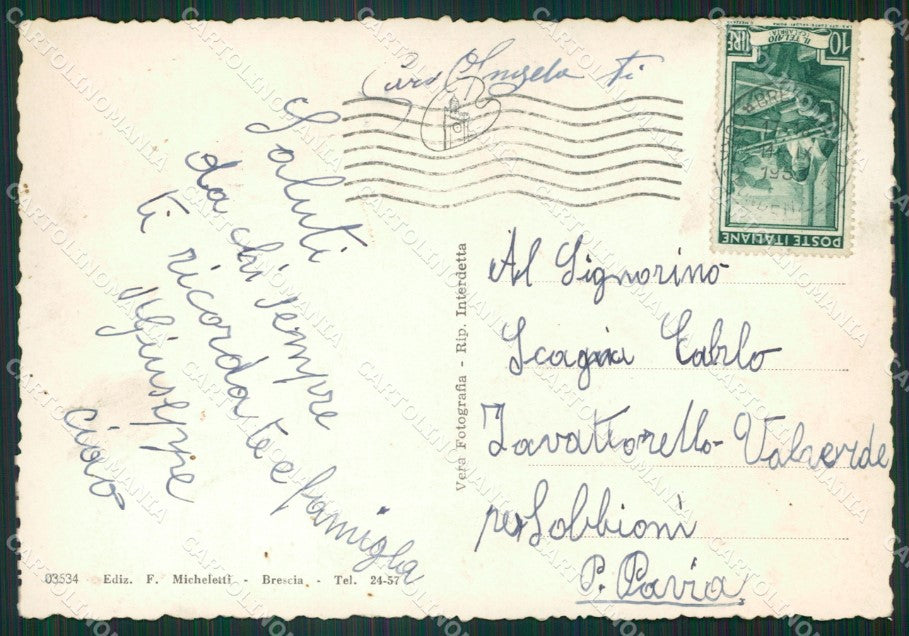 Cara Angela ti
Saluti
da chi sempre
ti ricorda te e famiglia
Giuseppe
ciao
Vera Fotografia - Rip. Interdetta
Al Signorino
Scagni Carlo
Zavattorello - Valverde
per Sobbioni
P. Pavia
03534 Ediz. F. Micheletti - Brescia - Tel. 24-57
10 LIRE
IL TELAIO
POSTE ITALIANE
CARTOLINOMANIA